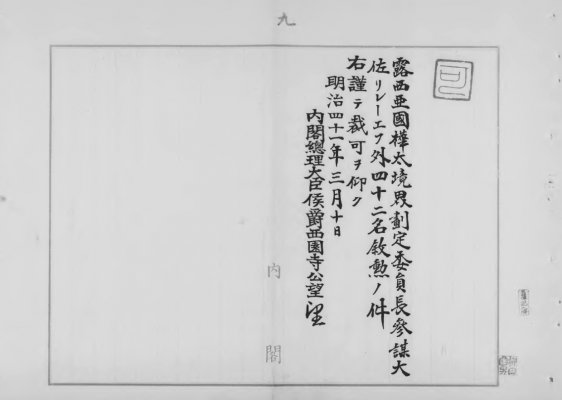 九
可
露西亜國樺太境界劃定委員長參謀大
佐リレーエフ外四十二名敘勲ノ件
右謹テ裁可ヲ仰ク
明治四十一年三月十日
内閣總理大臣侯爵西園寺公望
内閣